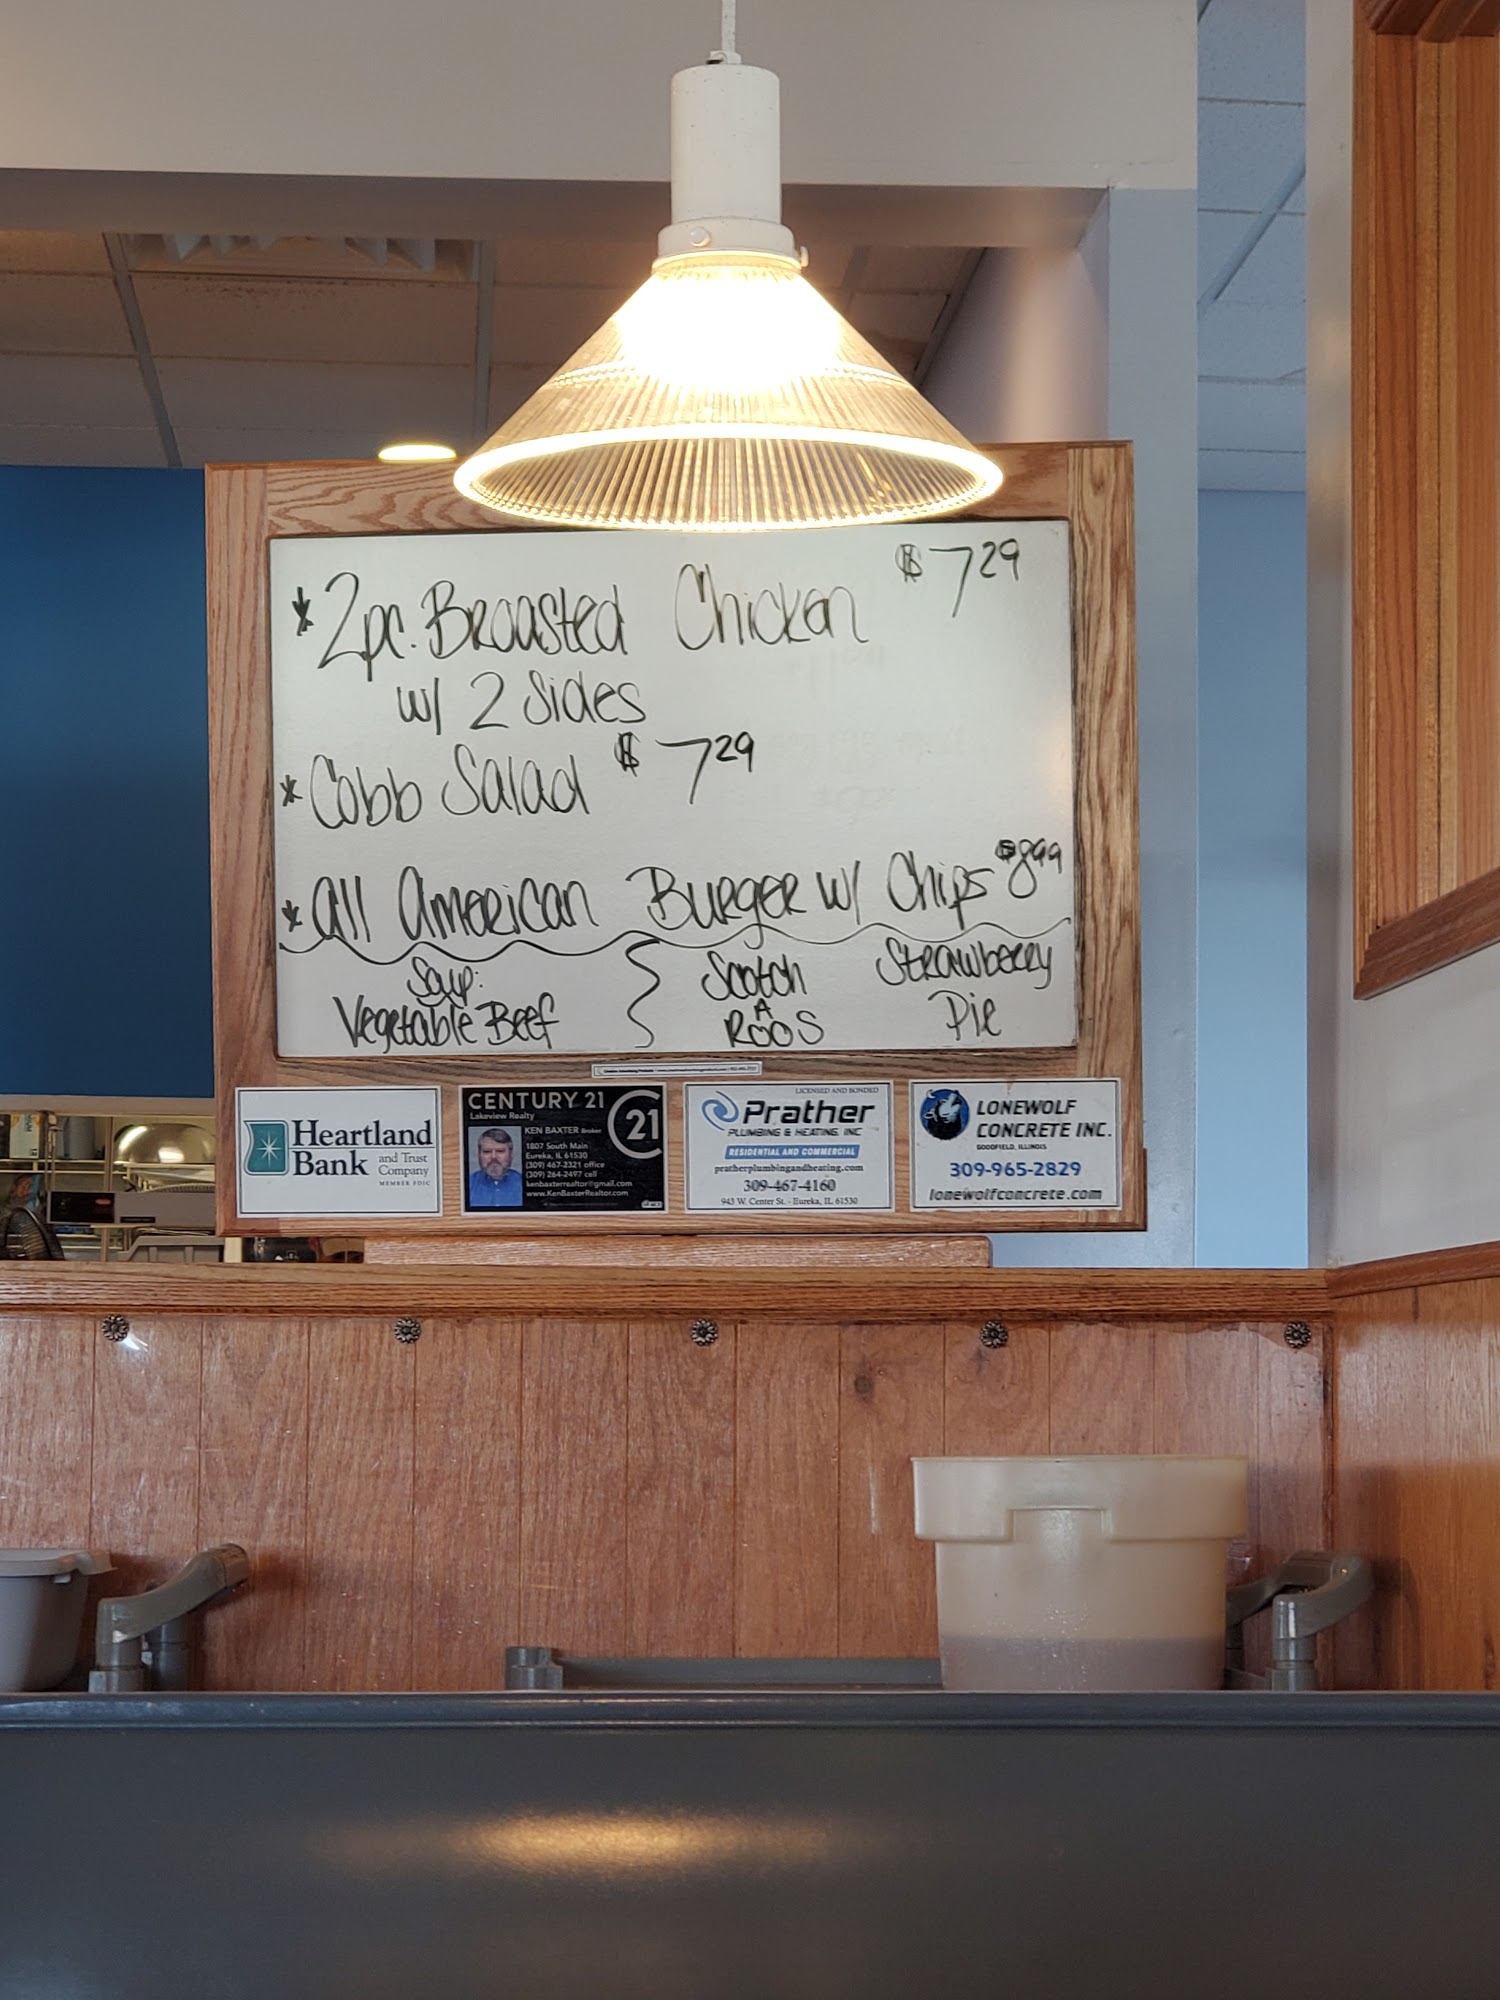 * 2pc. Broasted Chicken $7 29
w/ 2 Sides
* Cobb Salad $7 29
* All American Burger w/ Chips $8 99
Soup:
Vegetable Beef
Scotch
A
Roos
Strawberry
Pie
Heartland
Bank and Trust
Company
MEMBER FDIC
CENTURY 21
Lakeview Realty
KEN BAXTER Broker
1807 South Main
Eureka, IL 61530
(309) 467-2321 office
(309) 264-2497 cell
kenbaxterrealtor@gmail.com
www.KenBaxterRealtor.com
C21
LICENSED AND BONDED
Prather
PLUMBING & HEATING, INC
RESIDENTIAL AND COMMERCIAL
pratherplumbingandheating.com
309-467-4160
943 W. Center St. - Eureka, IL 61530
LONEWOLF
CONCRETE INC.
GOODFIELD, ILLINOIS
309-965-2829
lonewolfconcrete.com